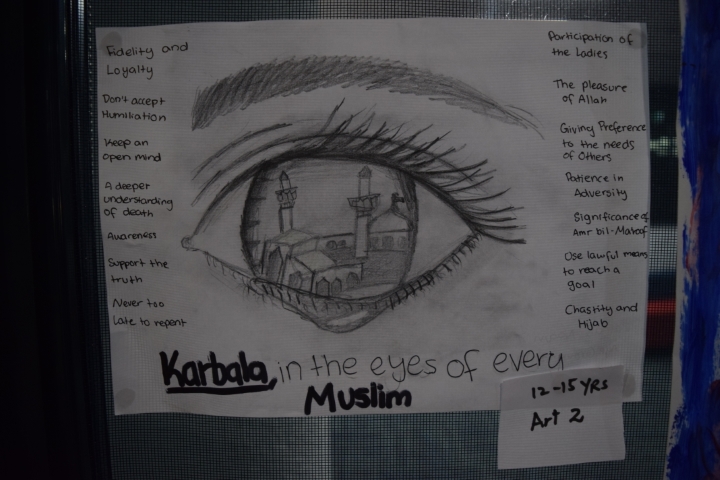 Fidelity and
Loyalty
Don't accept
Humiliation
Keep an
open mind
A deeper
understanding
of death
Awareness
Support the
truth
Never too
late to repent
Participation of
the Ladies
The pleasure
of Allah
Giving Preference
to the needs
of Others
Patience in
Adversity
Significance of
Amr bil-Maroof
Use lawful means
to reach a
goal
Chastity and
Hijab
Karbala, in the eyes of every
Muslim
12-15 YRS
Art 2